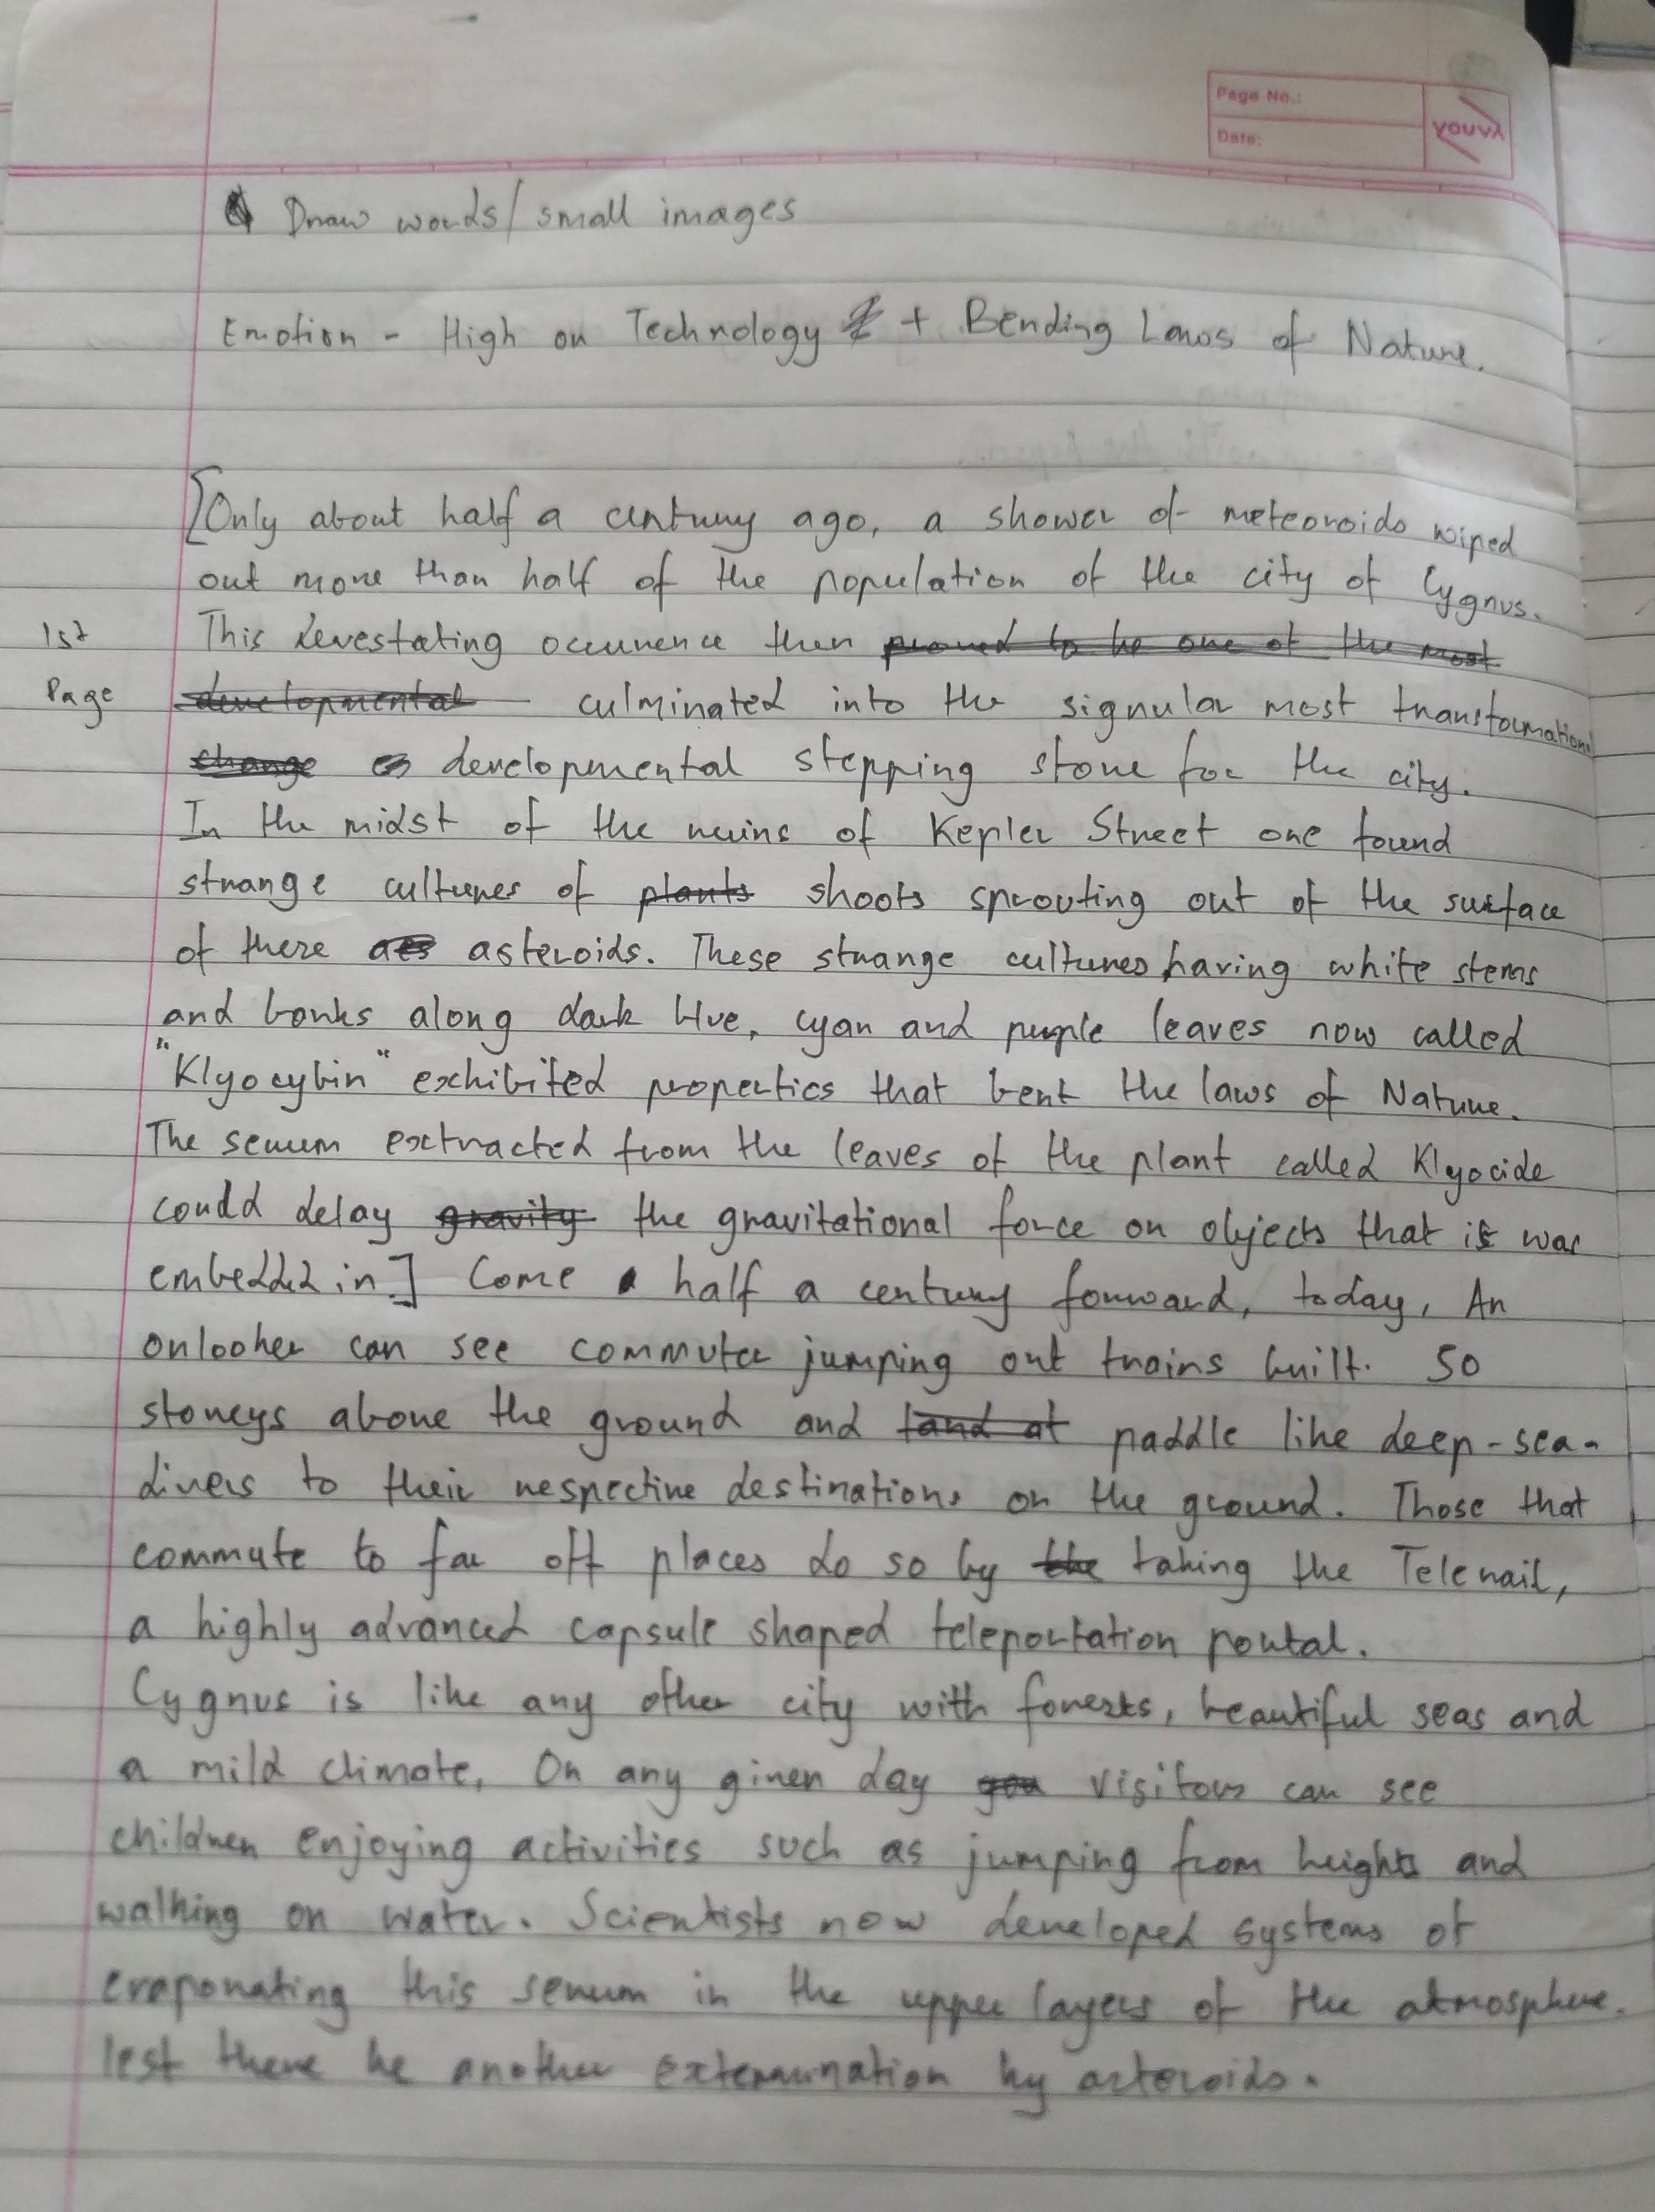 Page No.:
Date:
YOUVA
Draw words/small images
Emotion - High on Technology + Bending Laws of Nature.
[Only about half a century ago, a shower of meteoroids wiped
out more than half of the population of the city of Cygnus.
1st This devestating occurrence then proved to be one of the most
Page developmental culminated into the signular most transformational
change developmental stepping stone for the city.
In the midst of the ruins of Kepler Street one found
strange cultures of plants shoots sprouting out of the surface
of these aes asteroids. These strange cultures, having white stems
and barks along dark blue, cyan and purple leaves now called
"Klyocybin" exhibited properties that bent the laws of Nature.
The serum extracted from the leaves of the plant called Klyocide
could delay gravity the gravitational force on objects that it was
embedded in.] Come half a century forward, today, An
onlooker can see commuter jumping out trains built. 50
storeys above the ground and land at paddle like deep-sea-
divers to their respective destinations on the ground. Those that
commute to far off places do so by the taking the Telerail,
a highly advanced capsule shaped teleportation portal.
Cygnus is like any other city with forests, beautiful seas and
a mild climate. On any given day you visitors can see
children enjoying activities such as jumping from heights and
walking on water. Scientists now developed systems of
evaporating this serum in the upper layers of the atmosphere.
lest there be another extermination by asteroids.